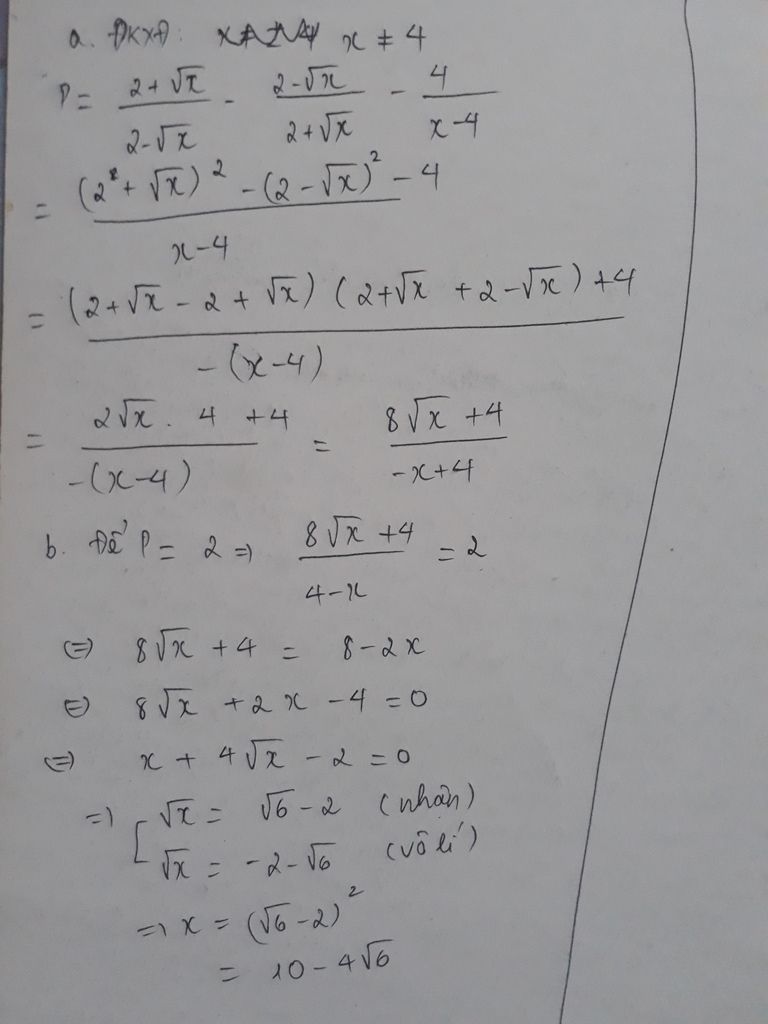 a. ĐKXĐ: x ≠ 4
P = (2+√x)/(2-√x) - (2-√x)/(2+√x) - 4/(x-4)
= ((2+√x)² - (2-√x)² - 4)/(x-4)
= ((2+√x - 2+√x)(2+√x + 2-√x) + 4)/(-(x-4))
= (2√x . 4 + 4)/(-(x-4)) = (8√x + 4)/(-x+4)
b. Để P = 2 => (8√x + 4)/(4-x) = 2
<=> 8√x + 4 = 8 - 2x
<=> 8√x + 2x - 4 = 0
<=> x + 4√x - 2 = 0
=> [ √x = √6 - 2 (nhận)
√x = -2 - √6 (vô lí)
=> x = (√6 - 2)²
= 10 - 4√6